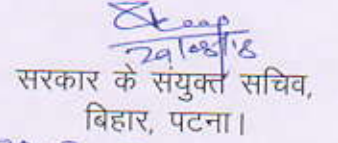 29/08/18
सरकार के संयुक्त सचिव,
बिहार, पटना।